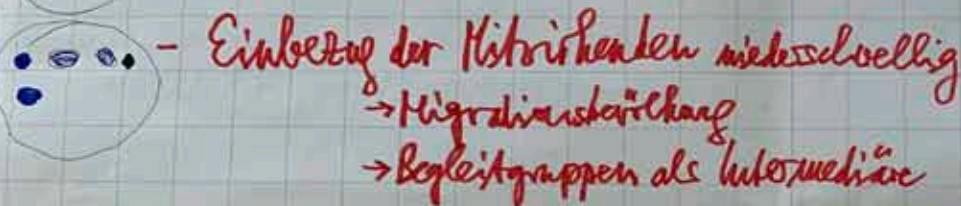 - Einbezug der Mitwirkenden niederschwellig
→ Migrationsbevölkerung
→ Begleitgruppen als Intermediäre